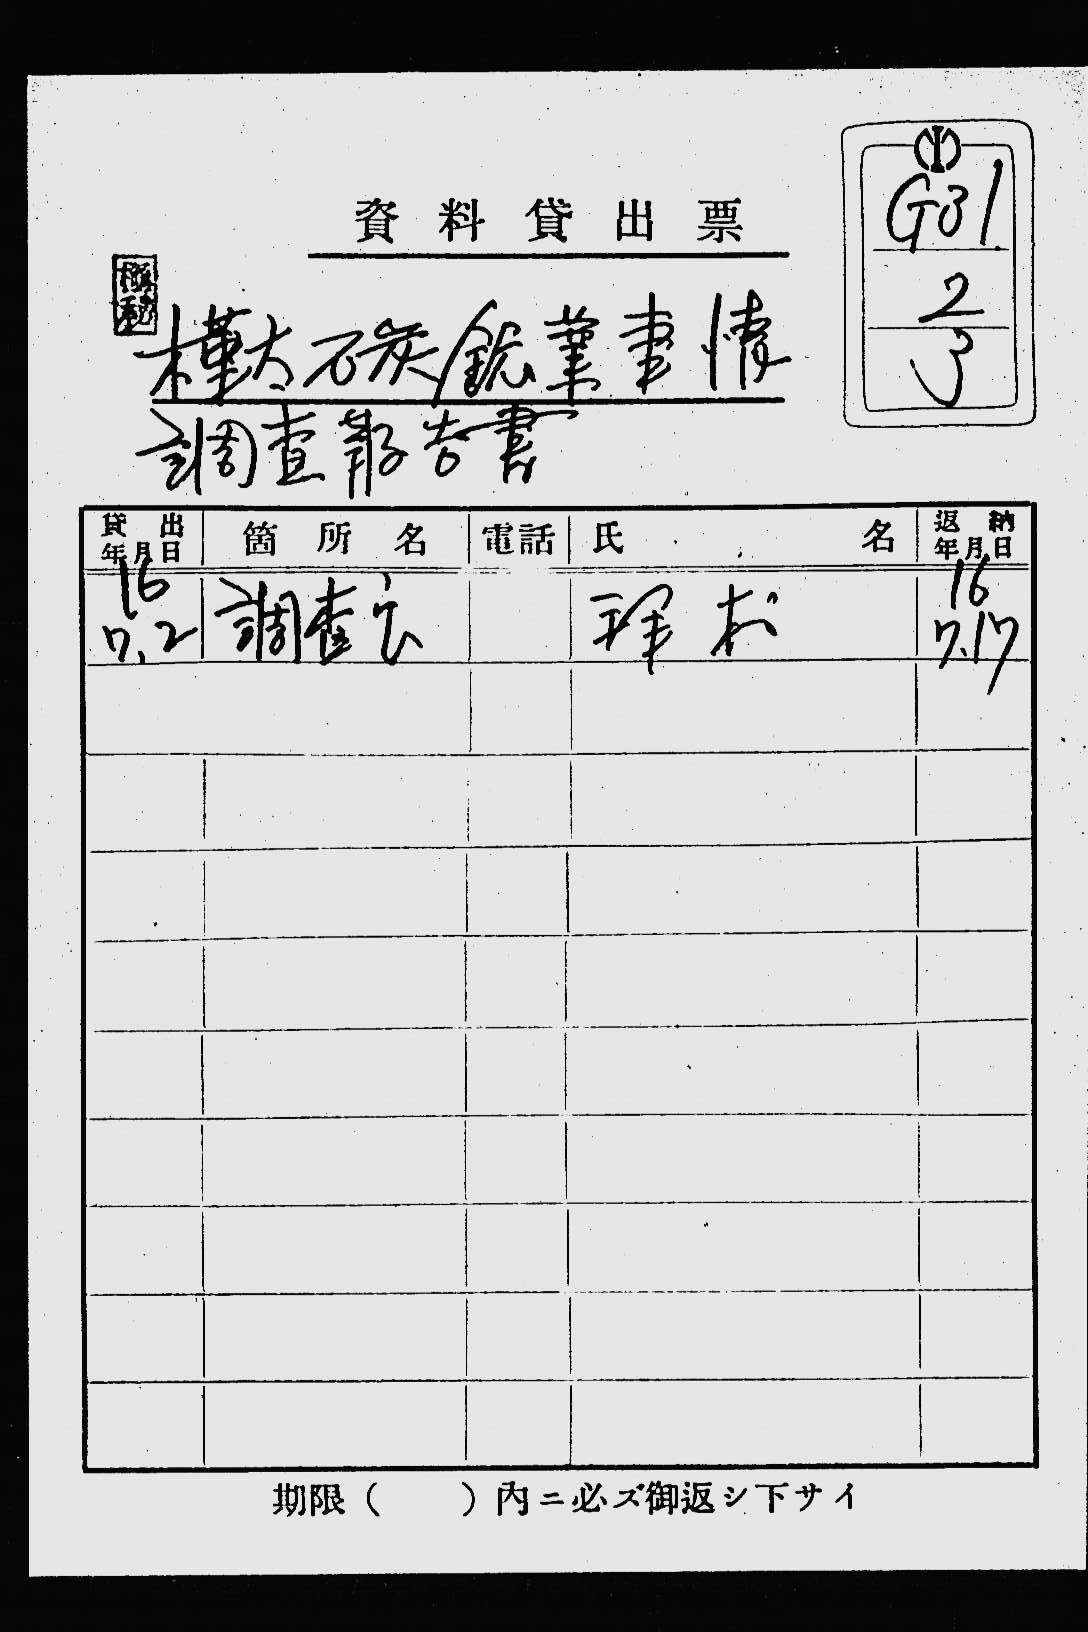 資料貸出票
極秘
G31
2
3
樺太石炭鉱業事情
調査報告書
貸出年月日 箇所名 電話 氏名 返納年月日
16 7.2 調査 16 7.17
期限（ ）内ニ必ズ御返シ下サイ